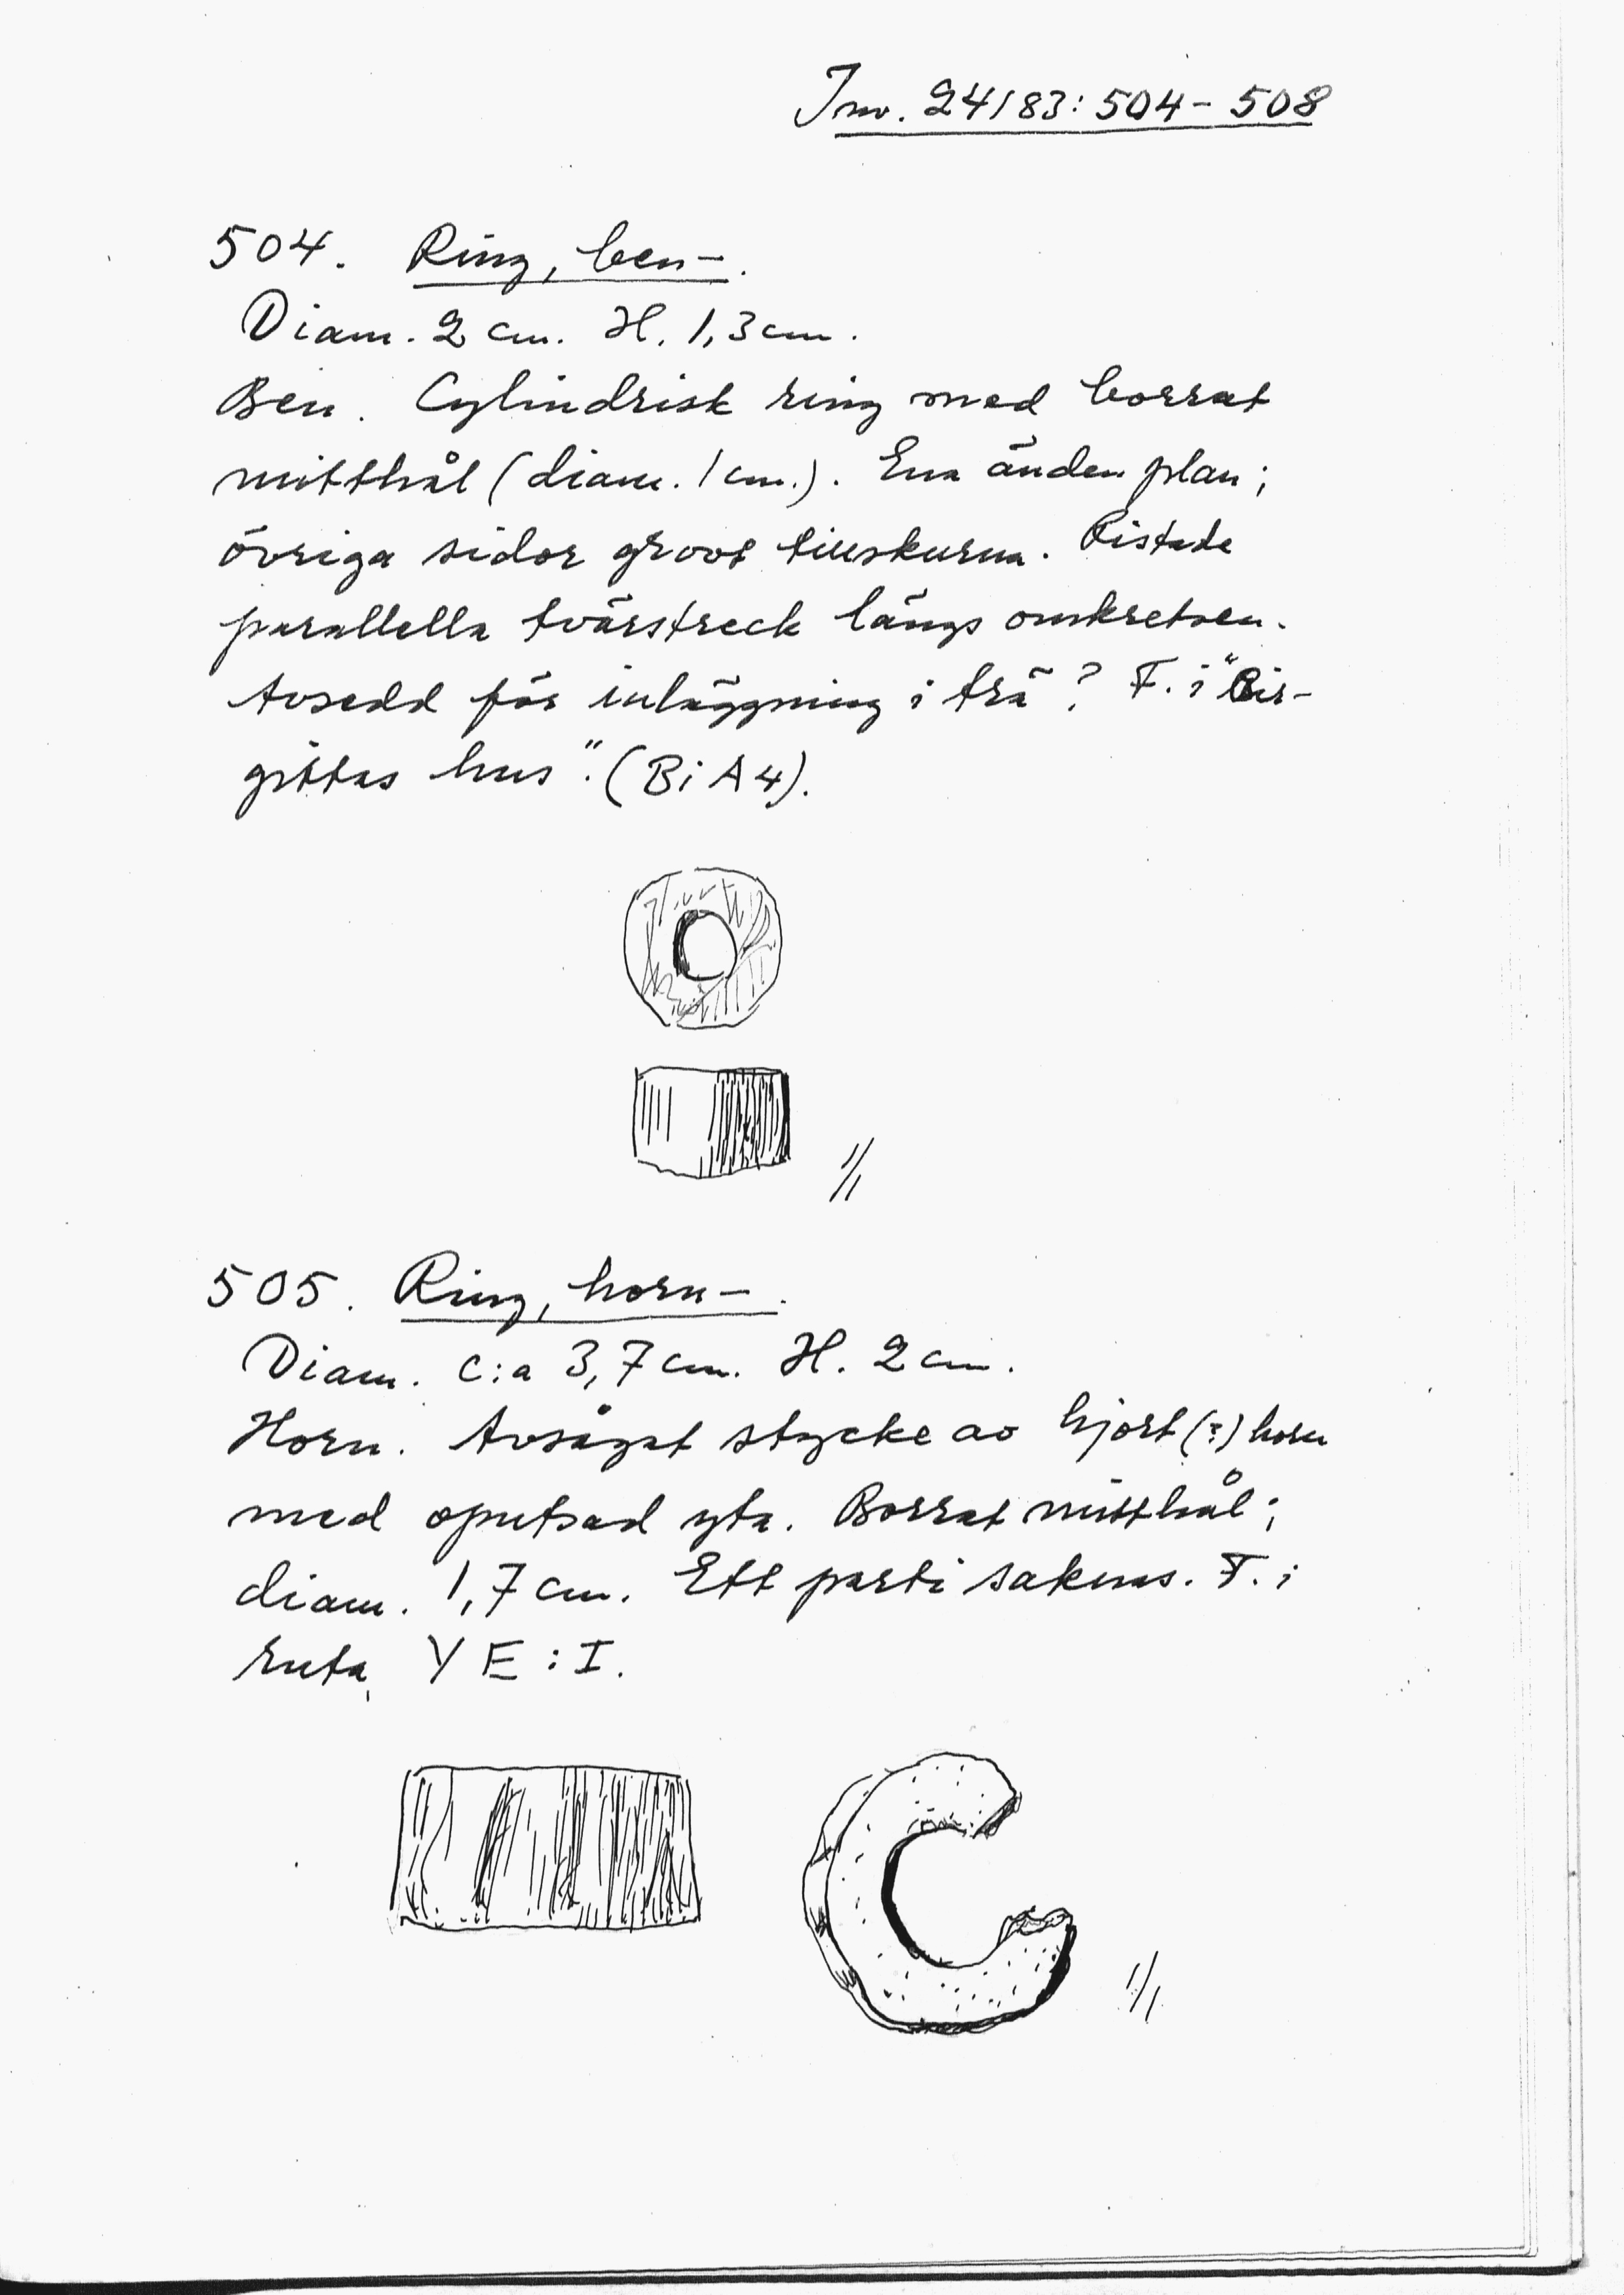 Inv. 24/83: 504-508
504. Ring, ben-.
Diam. 2 cm. H. 1,3 cm.
Ben. Cylindrisk ring med borrat
mitthål (diam. 1 cm.). Ena änden plan;
övriga sidor grovt tillskurna. Ristade
parallella tvärstreck längs omkretsen.
Avsedd för inläggning i trä? F. i "Bir-
gittas hus". (Bi A4).
1/1
505. Ring, horn-.
Diam. c:a 3,7 cm. H. 2 cm.
Horn. Avsågat stycke av hjort(?)horn
med oputsad yta. Borrat mitthål;
diam. 1,7 cm. Ett parti saknas. F. i
ruta YE:I.
1/1